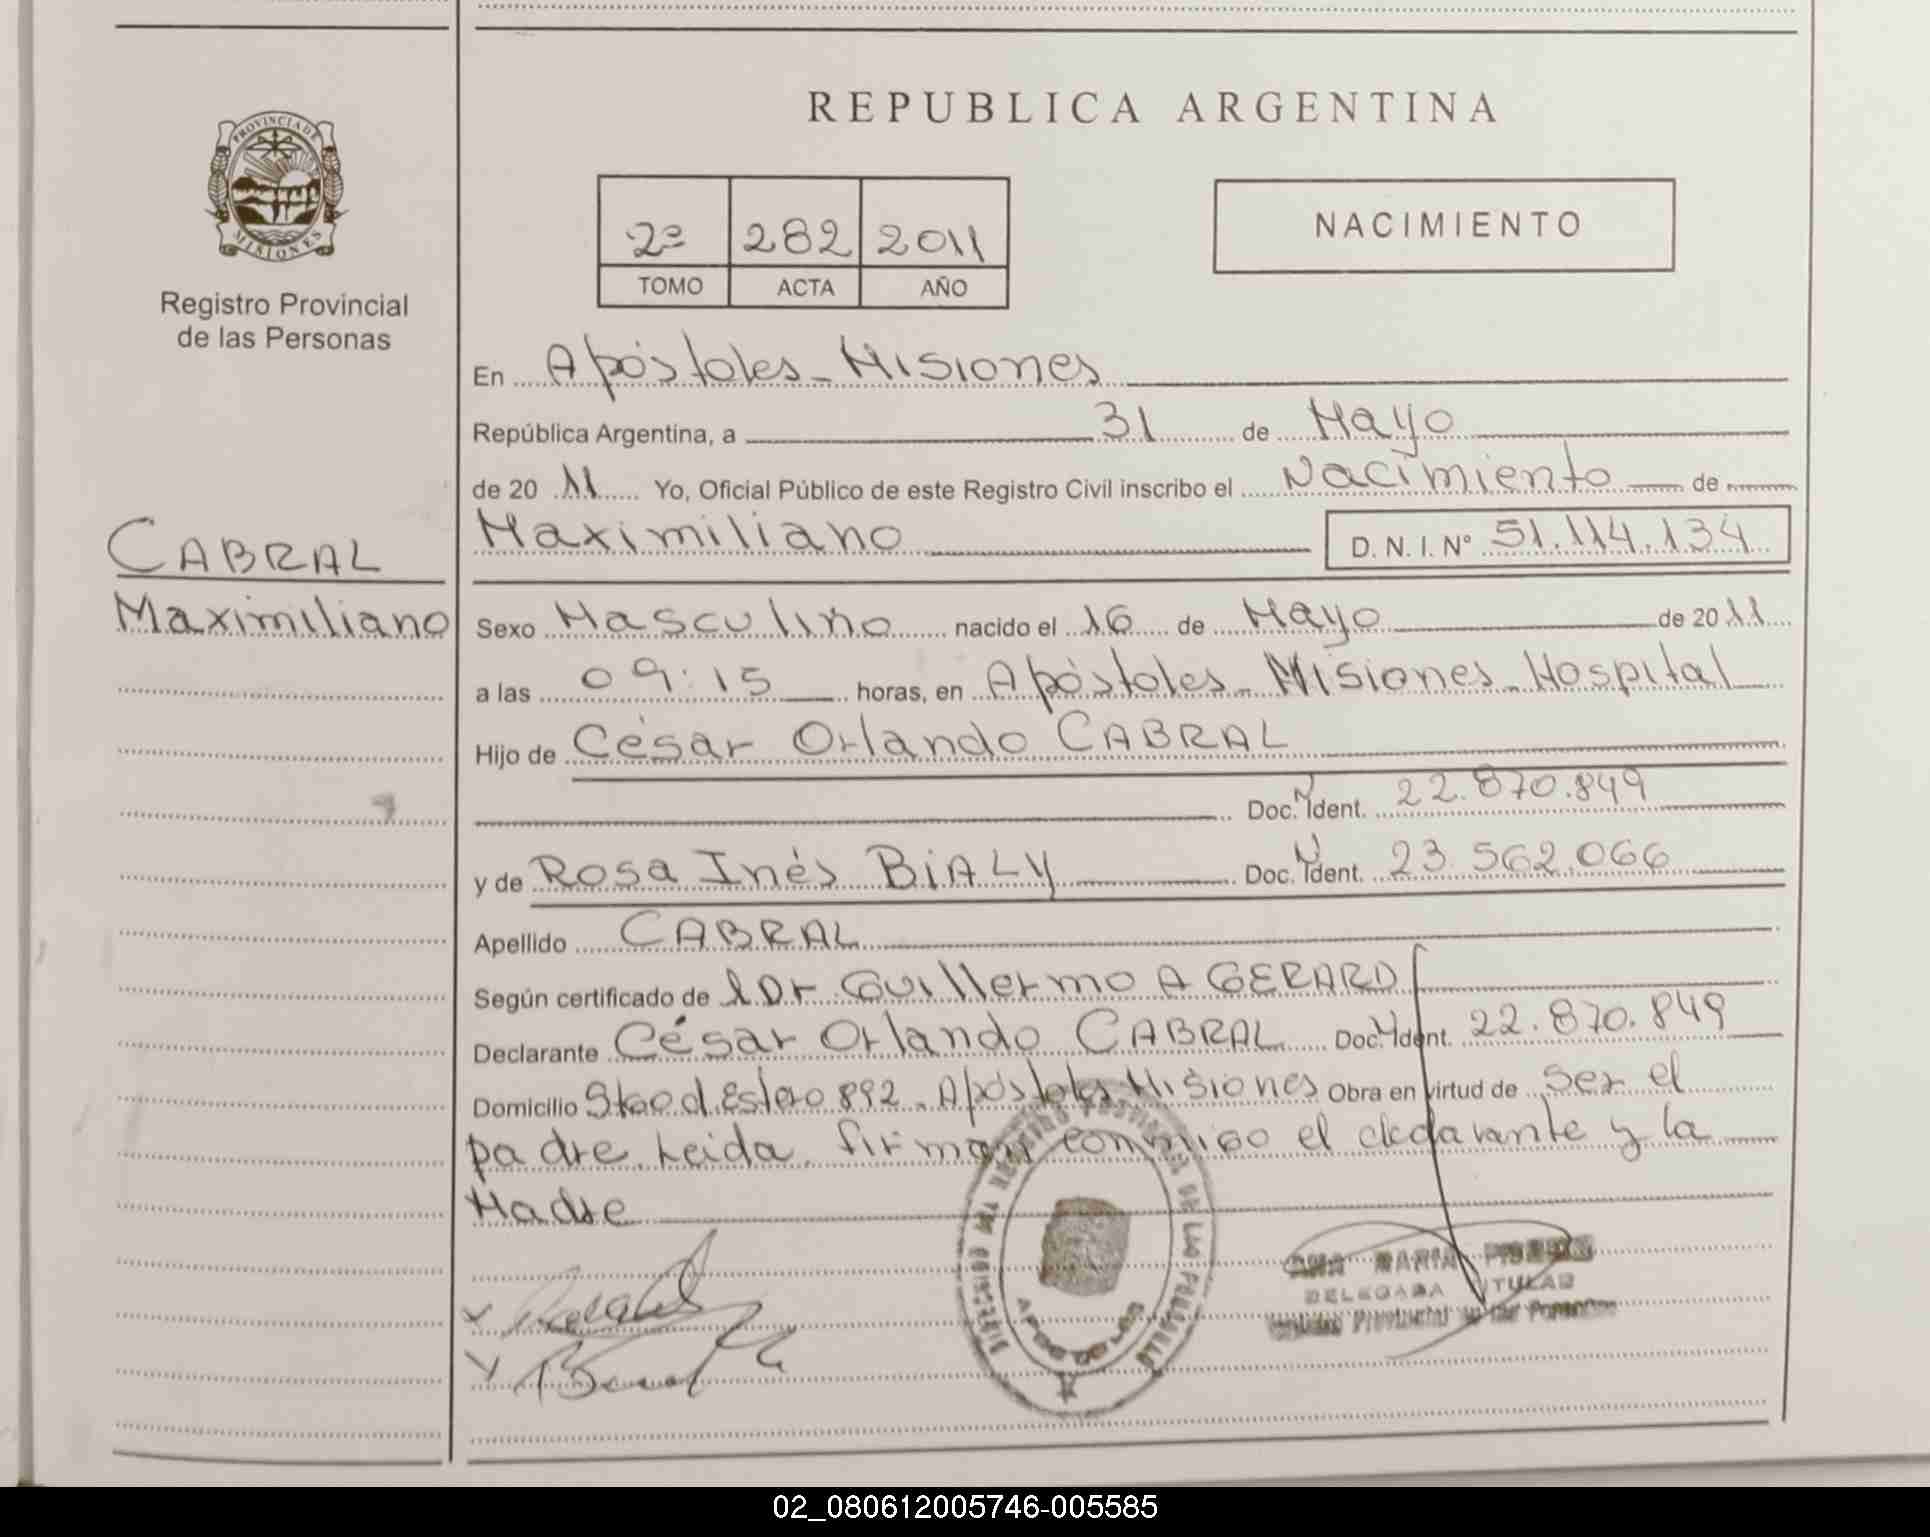 PROVINCIA DE
MISIONES
Registro Provincial
de las Personas
CABRAL
Maximiliano
REPUBLICA ARGENTINA
2º 282 2011
TOMO ACTA AÑO
NACIMIENTO
En Apóstoles - Misiones
República Argentina, a 31 de Mayo
de 20 11 Yo, Oficial Público de este Registro Civil inscribo el Nacimiento de
Maximiliano D. N. I. Nº 51.114.134
Sexo Masculino nacido el 16 de Mayo de 20 11
a las 09:15 horas, en Apóstoles - Misiones - Hospital
Hijo de César Orlando CABRAL
Doc. N Ident. 22.870.849
y de Rosa Inés BiALY Doc. N Ident. 23.562.066
Apellido CABRAL
Según certificado de l Dr Guillermo A GERARD
Declarante César Orlando CABRAL Doc. N Ident. 22.870.849
Domicilio Stgo d. Estero 892 - Apóstoles Misiones Obra en virtud de ser el
padre. Leida. firman conmigo el declarante y la
Madre
APOSTOLES
ANA MARIA
DELEGADA TITULAR
Registro Provincial de las Personas
02_080612005746-005585